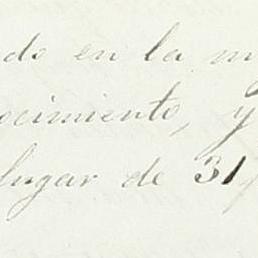 do en la m
ocimiento, y
lugar de 31